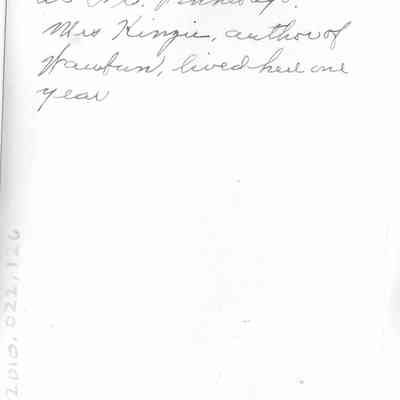 Mrs Kinzie, author of
Waubun, lived here one
year
2010.022.126